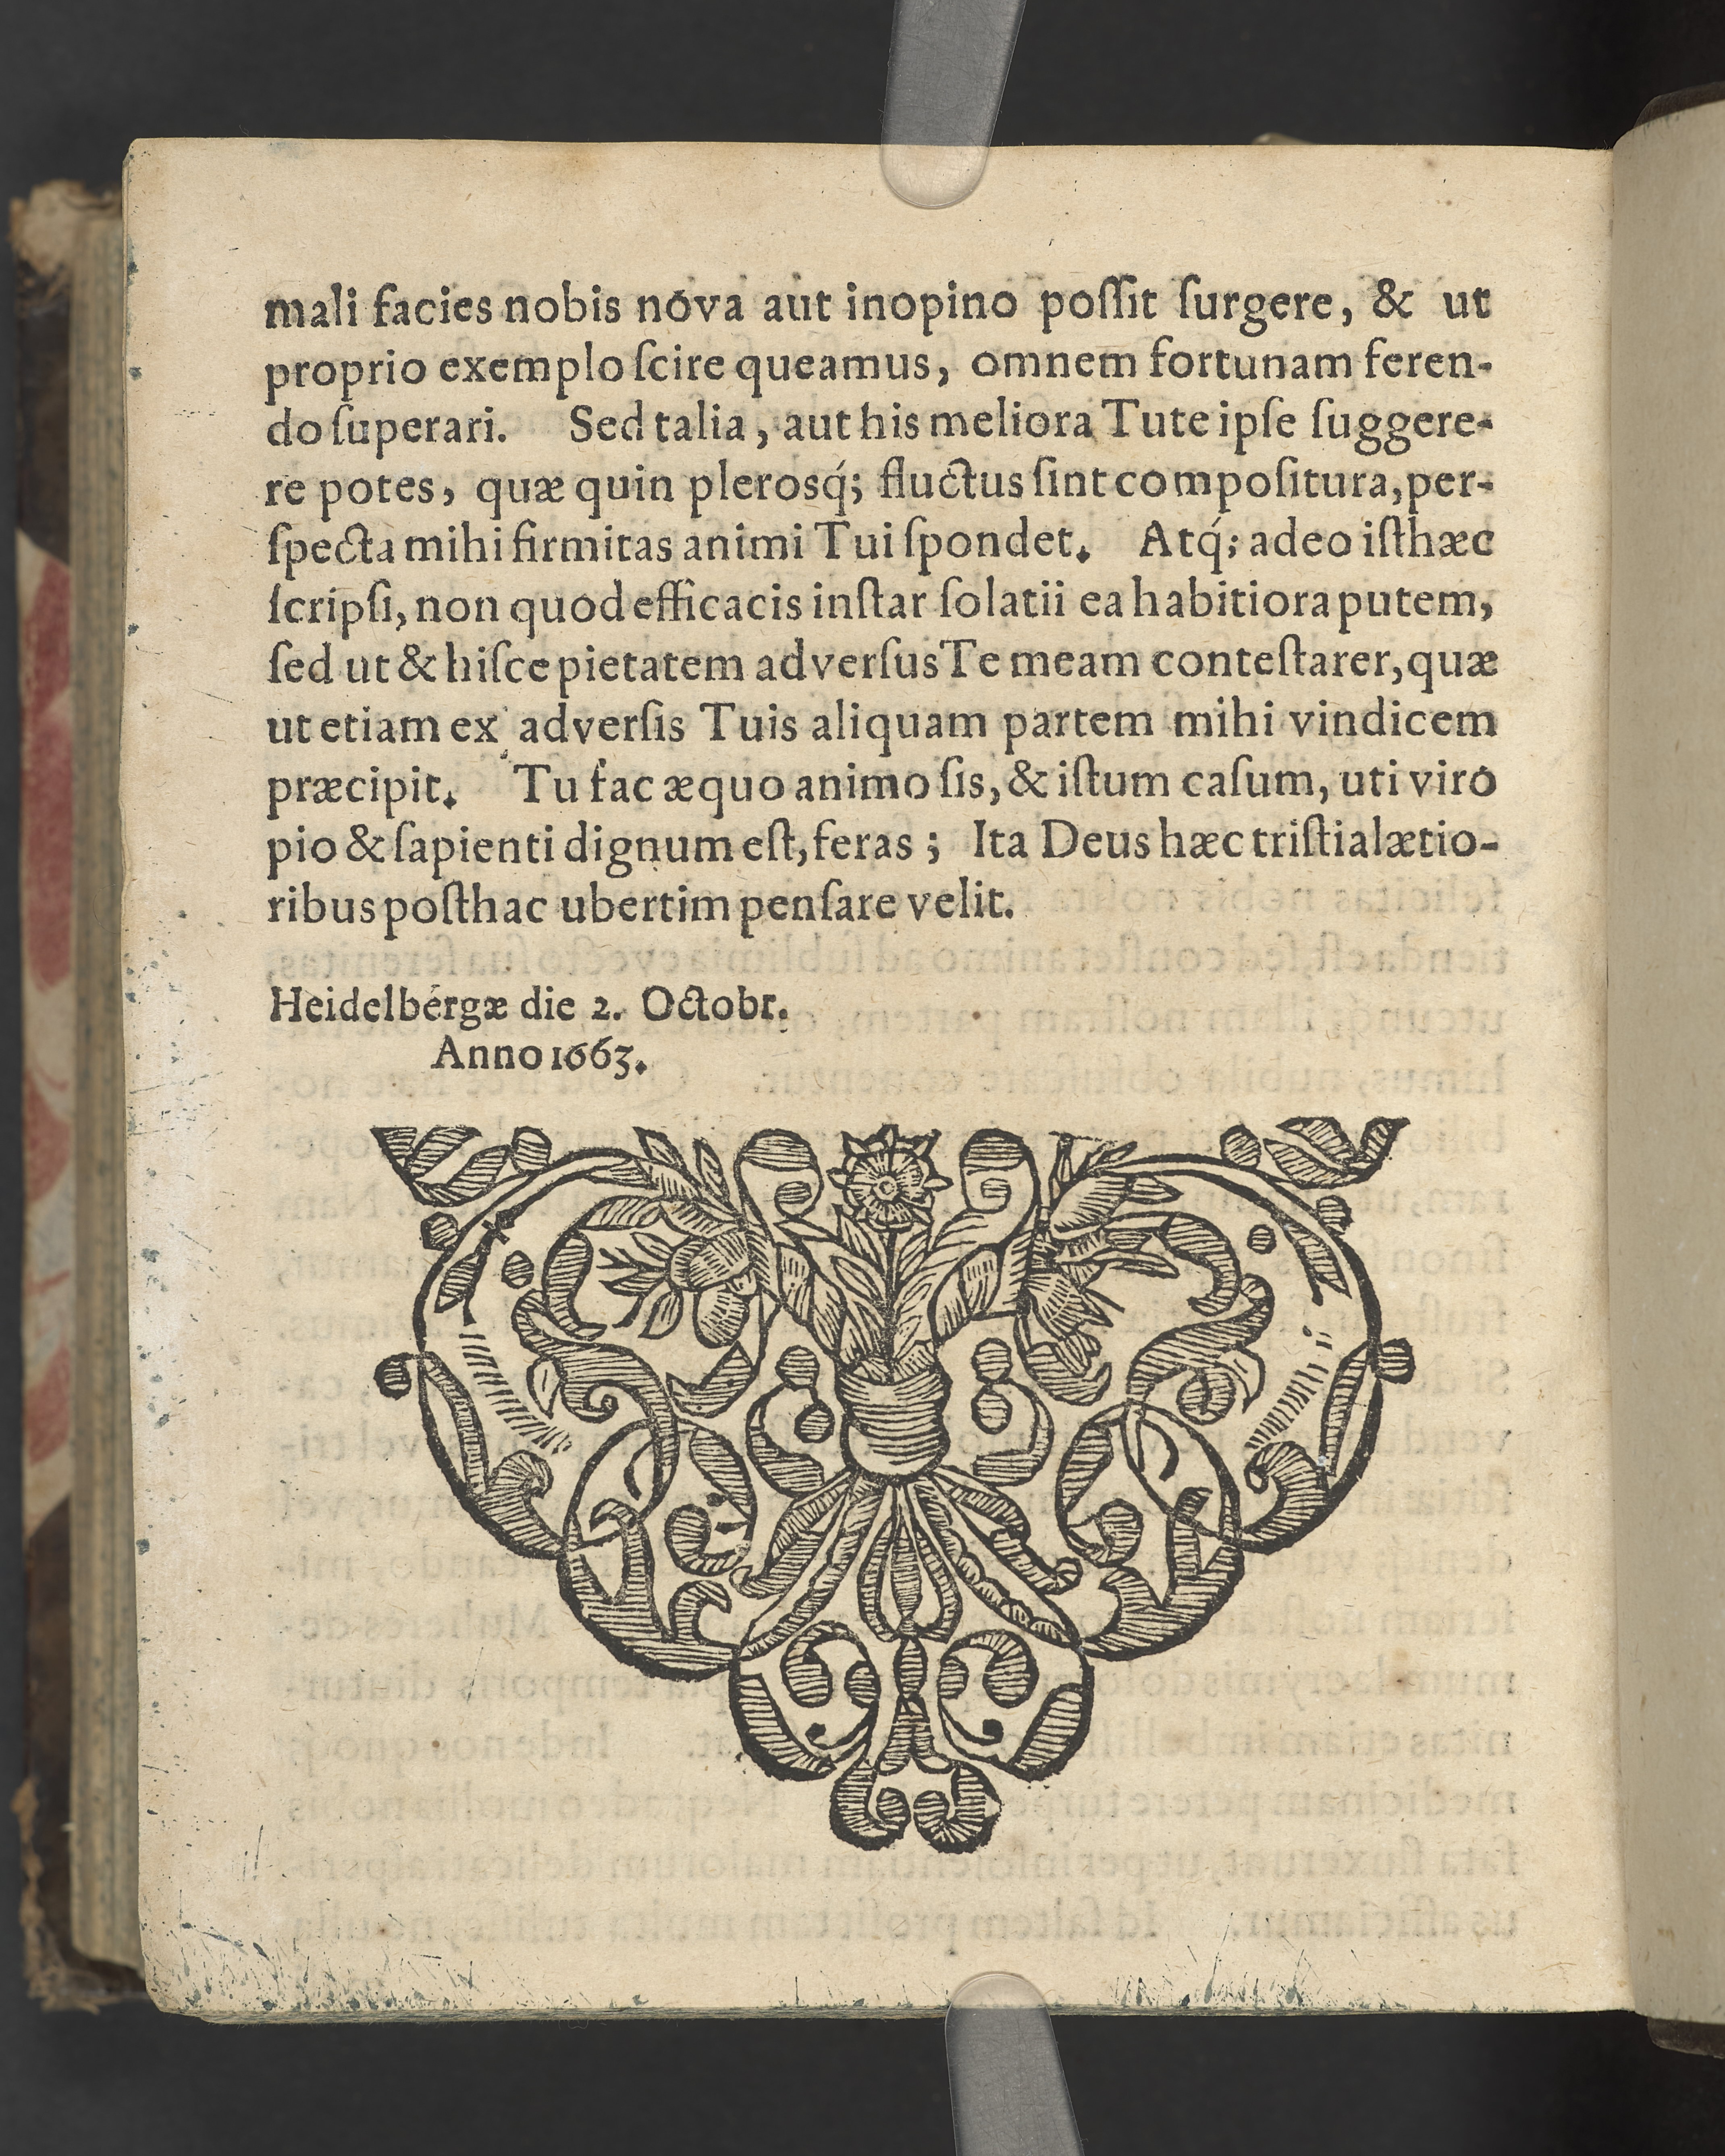 mali facies nobis nova aut inopino poſſit ſurgere, & ut
proprio exemplo ſcire queamus, omnem fortunam feren-
do ſuperari. Sed talia, aut his meliora Tute ipſe ſuggere-
re potes, quæ quin plerosq́; fluctus ſint compoſitura, per-
ſpecta mihi firmitas animi Tui ſpondet. Atq́; adeo iſthæc
ſcripſi, non quod efficacis inſtar ſolatii ea habitiora putem,
ſed ut & hiſce pietatem adverſus Te meam conteſtarer, quæ
ut etiam ex adverſis Tuis aliquam partem mihi vindicem
præcipit. Tu fac æquo animo ſis, & iſtum caſum, uti viro
pio & ſapienti dignum eſt, feras ; Ita Deus hæc triſtia lætio-
ribus poſthac ubertim penſare velit.
Heidelbergæ die 2. Octobr.
Anno 1663.